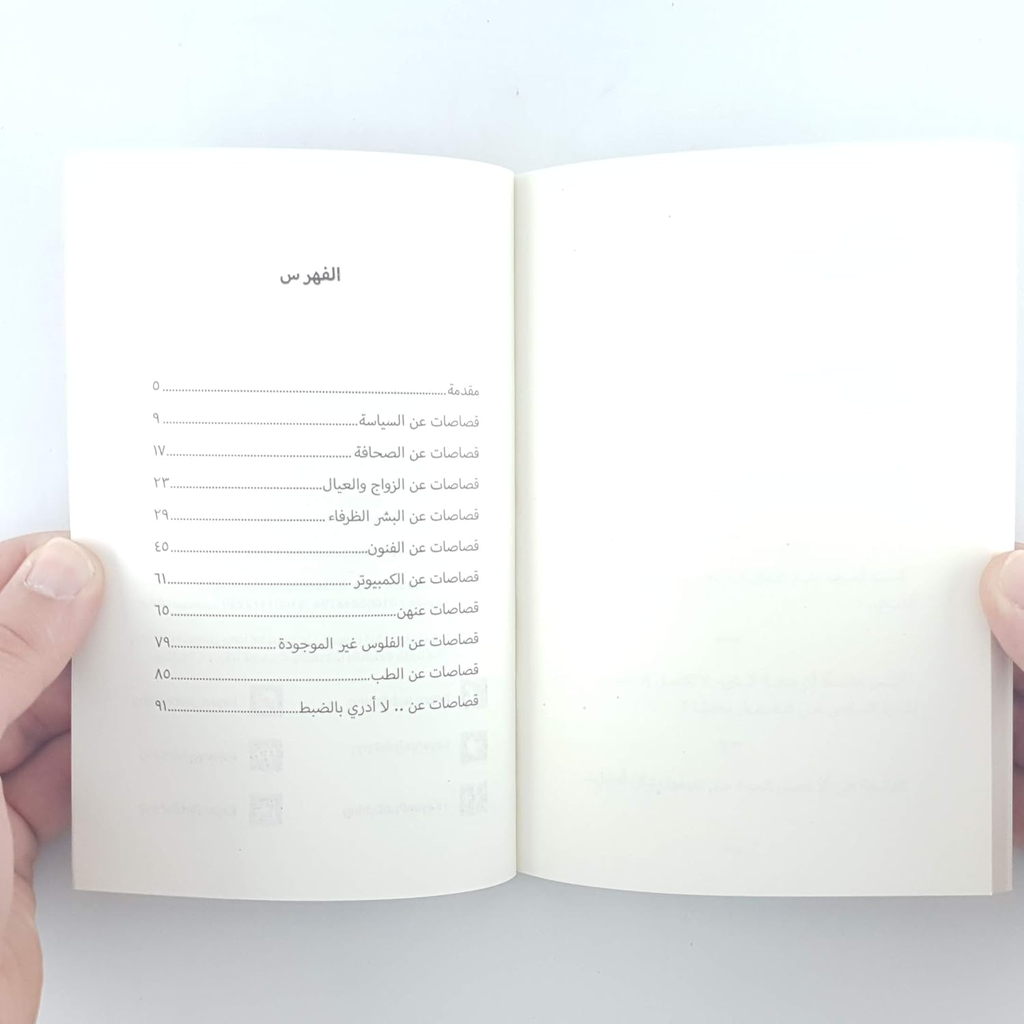 الفهرس
مقدمة...........................................................................................٥
قصاصات عن السياسة...............................................................٩
قصاصات عن الصحافة ............................................................١٧
قصاصات عن الزواج والعيال..................................................٢٣
قصاصات عن البشر الظرفاء ...................................................٢٩
قصاصات عن الفنون................................................................٤٥
قصاصات عن الكمبيوتر ............................................................٦١
قصاصات عنهن.........................................................................٦٥
قصاصات عن الفلوس غير الموجودة ...................................٧٩
قصاصات عن الطب.................................................................٨٥
قصاصات عن .. لا أدري بالضبط..........................................٩١